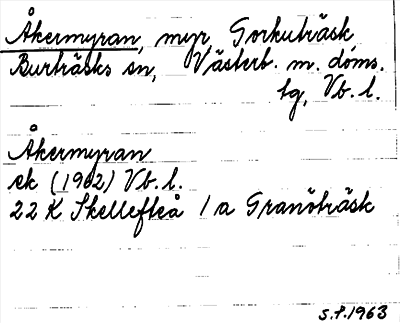 Åkermyran, myr Gorkuträsk
Burträsks sn, Västerb. m. doms.
tg, Vb. l.
Åkermyran
ek (1962) Vb. l.
22 K Skellefteå 1 a Granöträsk
S.P. 1963